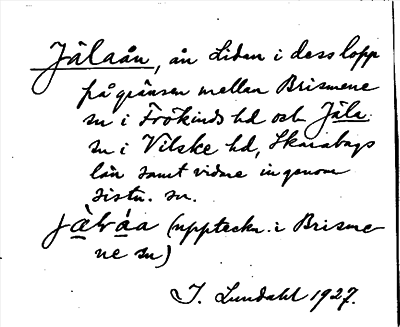 Jälaån, ån Lidan i dess lopp
på gränsen mellan Brismene
sn i Frökinds hd och Jäla
sn i Vilske hd, Skarabags
län samt vidare ingenom
sistn. sn.
jàlváa (uppteckn. i Brisme-
ne sn)
I. Lundahl 1927.